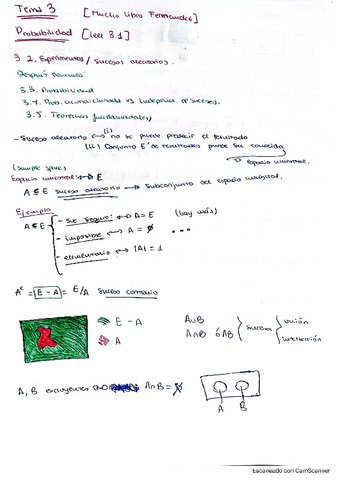 Tema 3 [Mucho libro Fernandez]
Probabilidad [leer 3.1]
3.2. Experimentos / sucesos aleatorios.
Después veremos:
3.3. Probabilidad
3.4. Prob. condicionada vs Indepen. de sucesos.
3.5. Teoremas fundamentales)
- Suceso aleatorio ↔ (i) no se puede predecir el resultado
(ii) Conjunto E de resultados puede ser conocido
↳ Espacio muestral.
(sample space)
Espacio muestral: ↔ E
A ⊆ E suceso aleatorio ↔ Subconjunto del espacio muestral.
Ejemplo
A ⊆ E
- seguro: ↔ A = E (hay más)
- imposible ↔ A = ∅ • • •
- elemental ↔ |A| = 1
Aᶜ = E - A = E/A suceso contrario
E - A
A
A∪B
A∩B ó AB
sucesos
unión
intersección
A, B excluyentes ↔ A∩B = ∅
A B
Escaneado con CamScanner